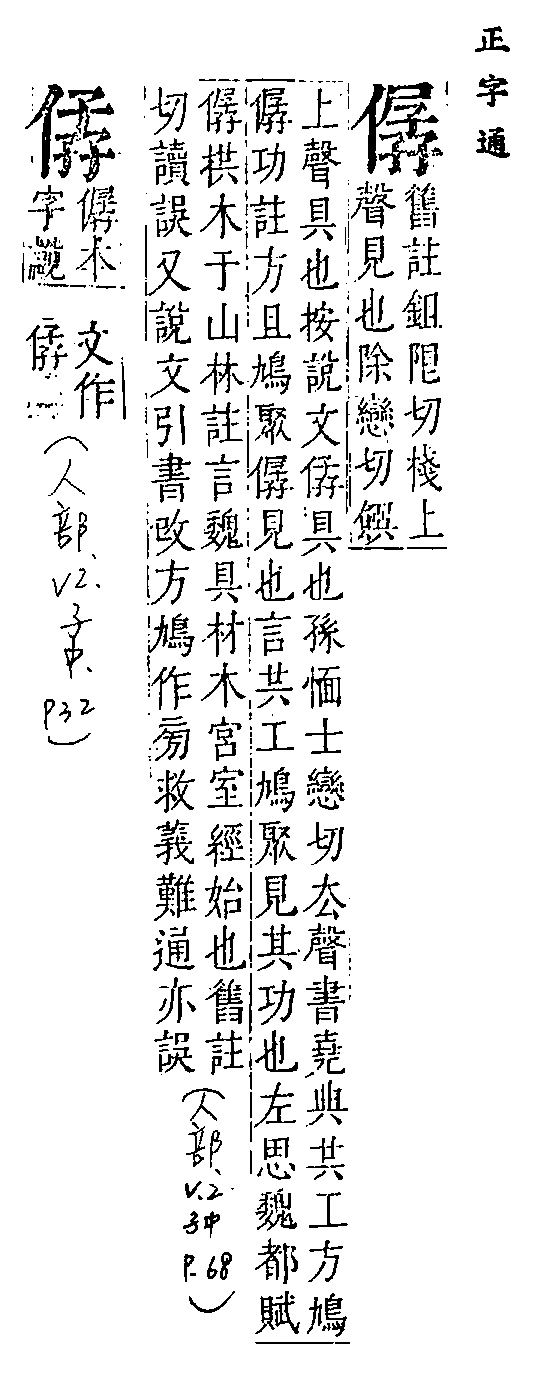 正字通
僝
舊註鉏限切棧上
聲見也除戀切饌
上聲具也按說文僝具也孫愐士戀切厺聲書堯典共工方鳩
僝功註方且鳩聚僝見也言共工鳩聚見其功也左思魏都賦
僝拱木于山林註言魏具材木宮室經始也舊註
切讀誤又說文引書改方鳩作㫄救義難通亦誤
(人部、V.2 子中 P.68)
僝本
字說
文作
(人部、V2、子中、P32)